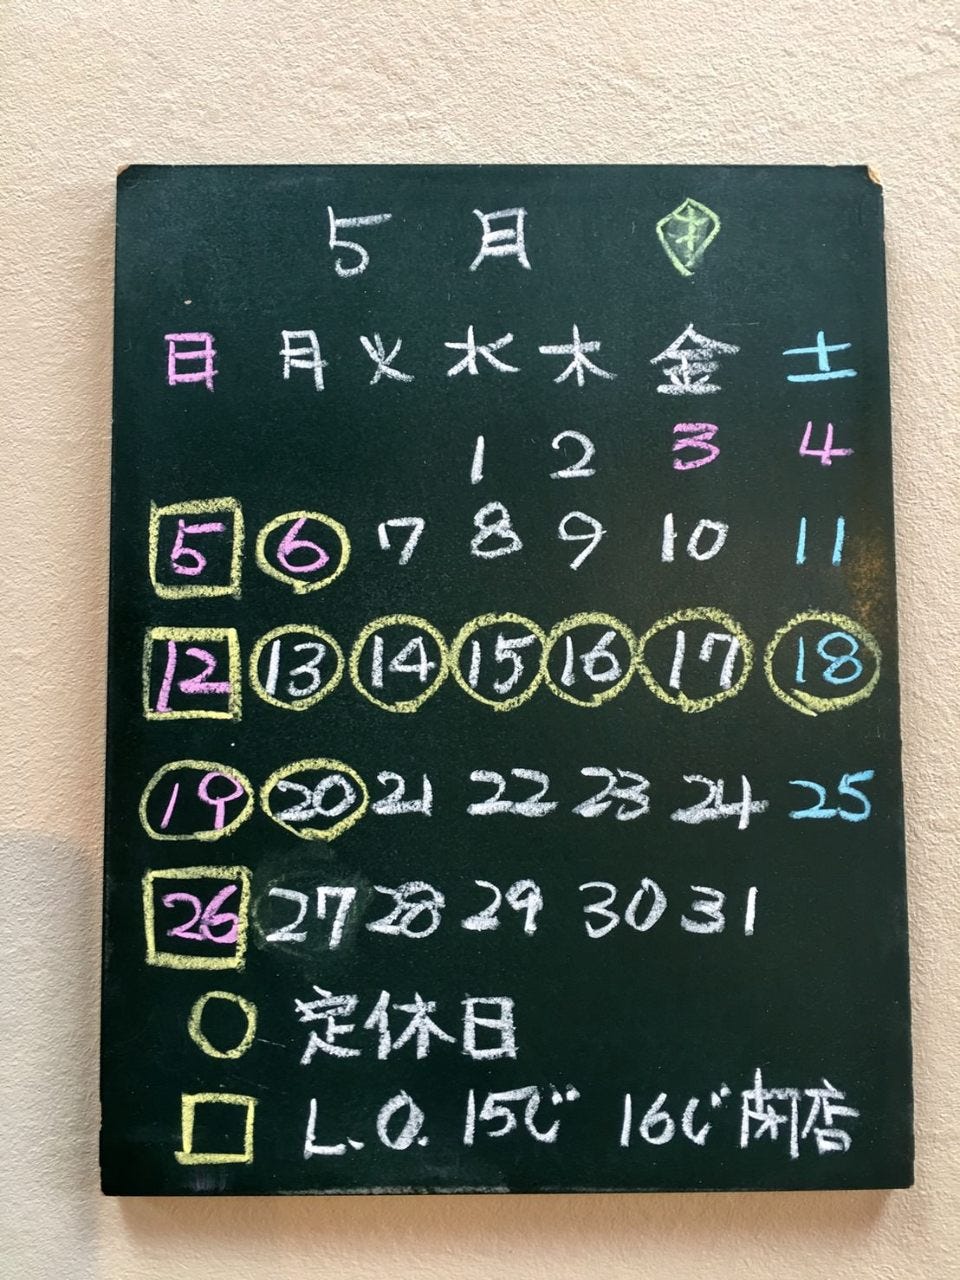 5月 オ
日 月 火 水 木 金 土
1 2 3 4
5 6 7 8 9 10 11
12 13 14 15 16 17 18
19 20 21 22 23 24 25
26 27 28 29 30 31
○ 定休日
□ L.O. 15じ 16じ閉店